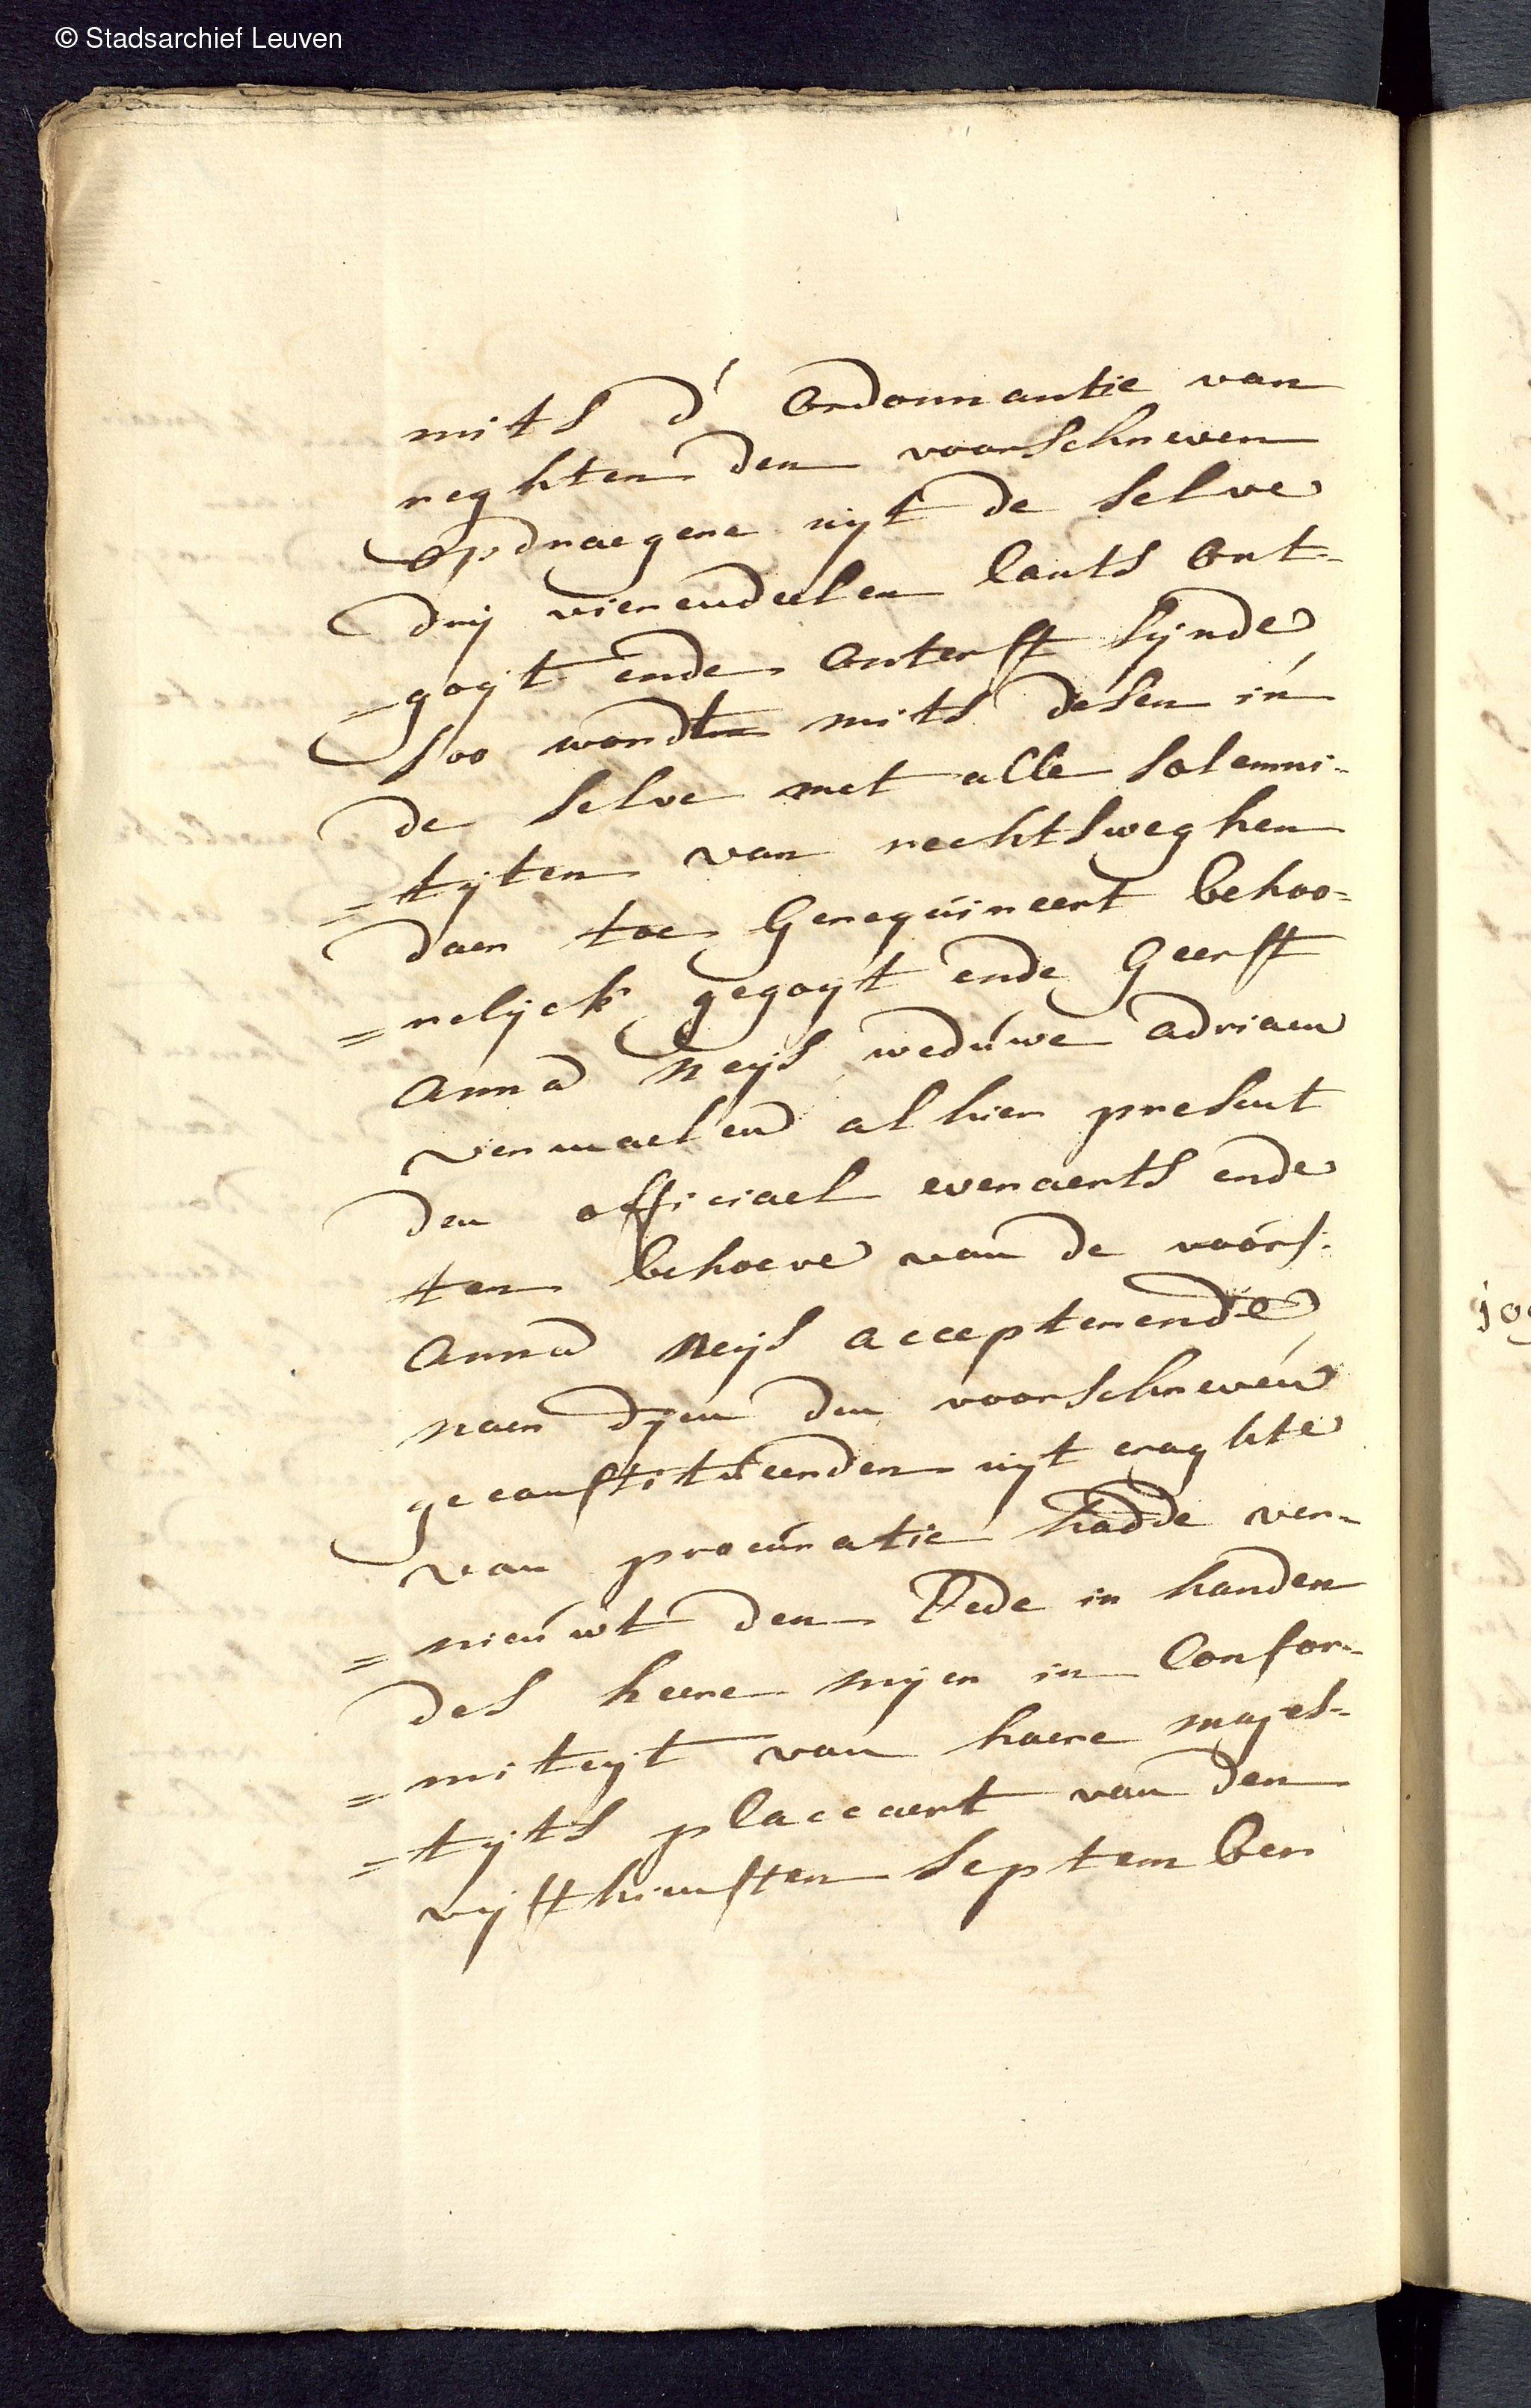 © Stadsarchief Leuven
mits d' ordonnantie van
reghten den voorschreven
opdraegere uijt de selve
drij vierendeelen lants ont-
=goijt ende onterft sijnde,
soo wordt mits desen in
de selve met alle solemni-
=tijten van rechtsweghen
daer toe Gerequireert behoo-
=relijck gegoijt ende Geerft
anna neijs weduwe adriaen
vermaelen alhier present
den officiael everaerts ende
ten behoeve van de voors:
anna neijs accepterende,
naer dijen den voorschreven
geconstitueerden uijt craghte
van procuratie hadde ver-
=nieuwt den Eede in handen
des heere mijer in Confor-
=miteijt van haere majes-
=tijts placcaert van den
vijfthiensten september
jo